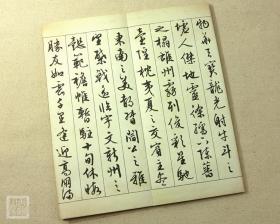 物華天寶龍光射牛斗之
墟人傑地靈徐孺下陳蕃
之榻雄州霧列俊彩星馳
臺隍枕夷夏之交賓主盡
東南之美都督閻公之雅
望棨戟遥临宇文新州之
懿範襜帷暫駐十旬休暇
勝友如雲千里逢迎高朋滿